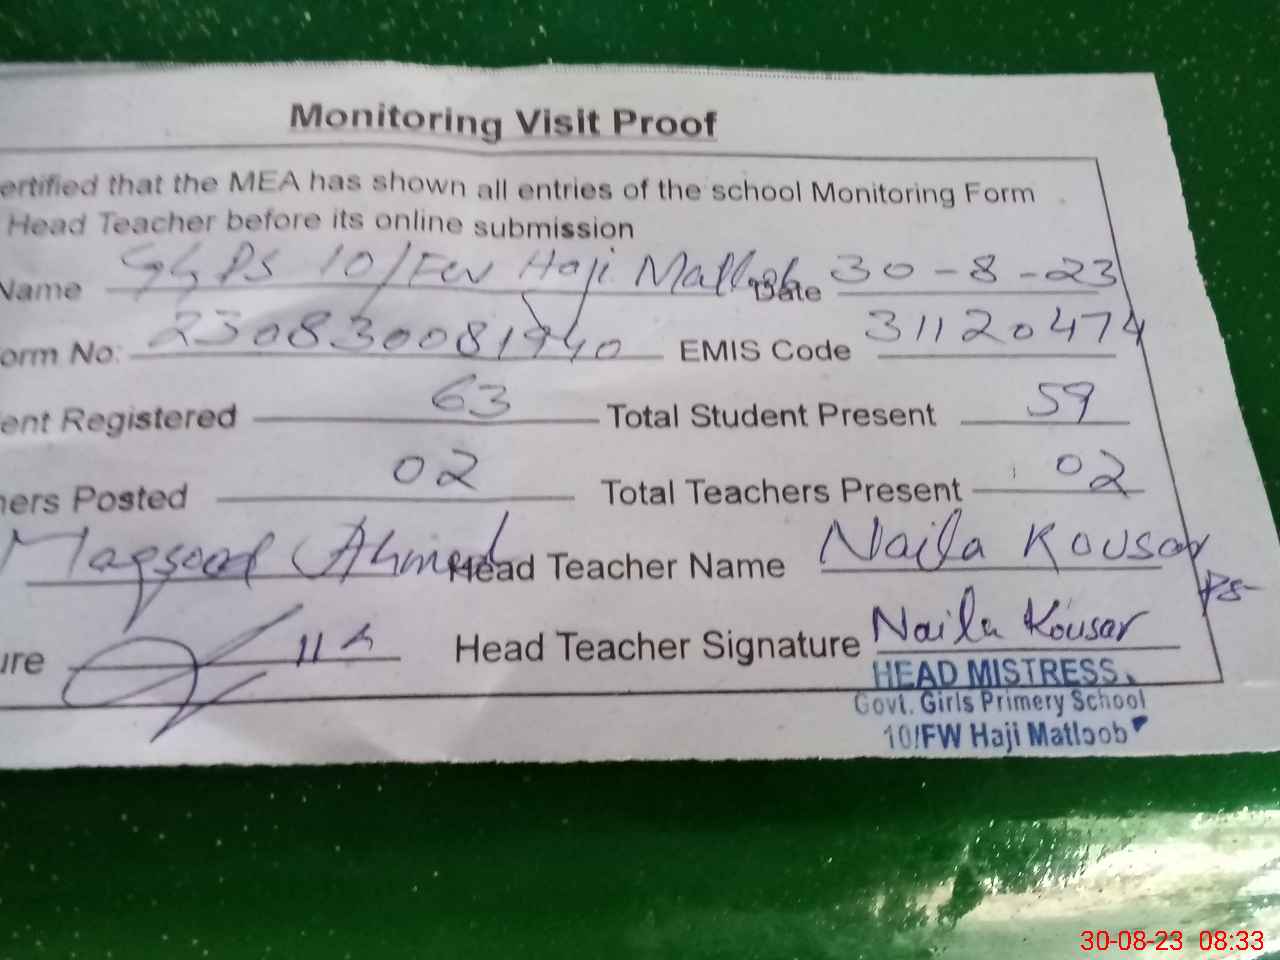 Monitoring Visit Proof
ertified that the MEA has shown all entries of the school Monitoring Form
Head Teacher before its online submission
Name GGPS 10/FW Haji Matloob Date 30-8-23
orm No: 230830081940 EMIS Code 31120474
ent Registered 63 Total Student Present 59
ers Posted 02 Total Teachers Present 02
Maqsood Ahmed Head Teacher Name Naila Kousar
PS
ure Head Teacher Signature Naila Kousar
HEAD MISTRESS
Govt. Girls Primery School
10/FW Haji Matloob
30-08-23 08:33